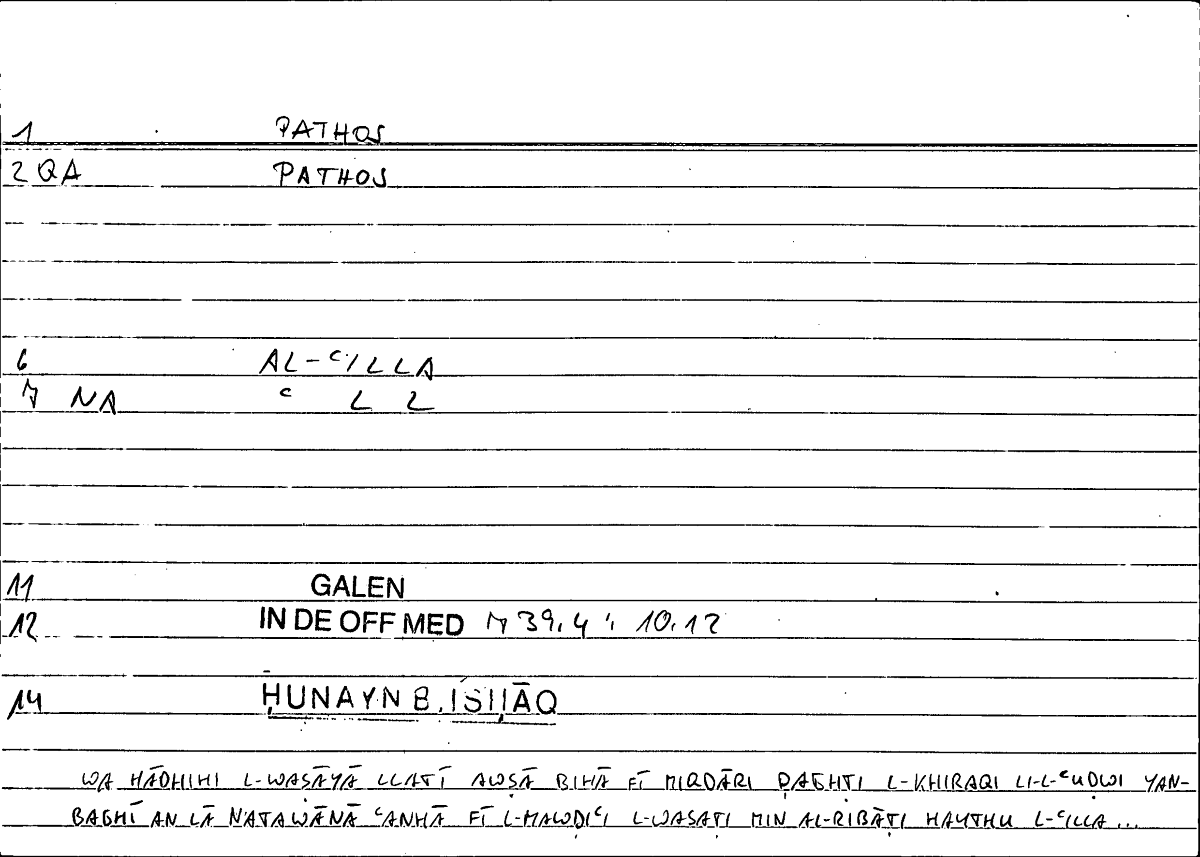 1 PATHOS
2 QA PATHOS
6 AL-ʿILLA
7 NA ʿ L L
11 GALEN
12 IN DE OFF MED 739,4 ; 10.12
14 ḤUNAYN B. ISḤĀQ
WA HĀDHIHI L-WAṢĀYĀ LLATĪ AWṢĀ BIHĀ FĪ MIQDĀRI ḌAGHṬI L-KHIRAQI LI-L-ʿUḌWI YAN-
BAGHĪ AN LĀ NATAWĀNĀ ʿANHĀ FĪ L-MAWḌIʿI L-WASAṬI MIN AL-RIBĀṬI ḤAYTHU L-ʿILLA ...